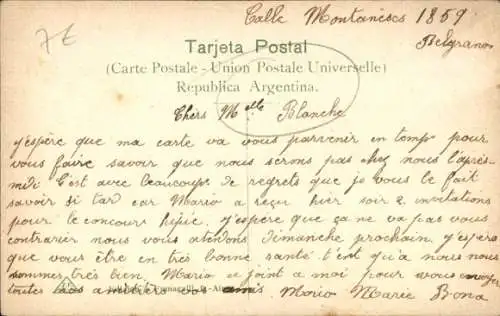 7 E
Calle Montaneses 1859
Belgrano
Tarjeta Postal
(Carte Postale - Union Postale Universelle)
Republica Argentina.
Chèrs Mlle Blanche
J'espère que ma carte va vous parvenir en temps pour
vous faire savoir que nous serons pas chez nous l'après-
midi C'est avec beaucoup de regrets que je vous le fait
savoir si tard car Mario a reçu hier soir 2 invitations
pour le concours hipic. J'espère que ça ne va pas vous
contrarier nous vous atendons dimanche prochain. J'espère
que vous être en très bonne santé. C'est qu'a nous nous
sommes très bien. Mario se joint a moi pour vous envoyer
toutes amis Mario Marie Bona